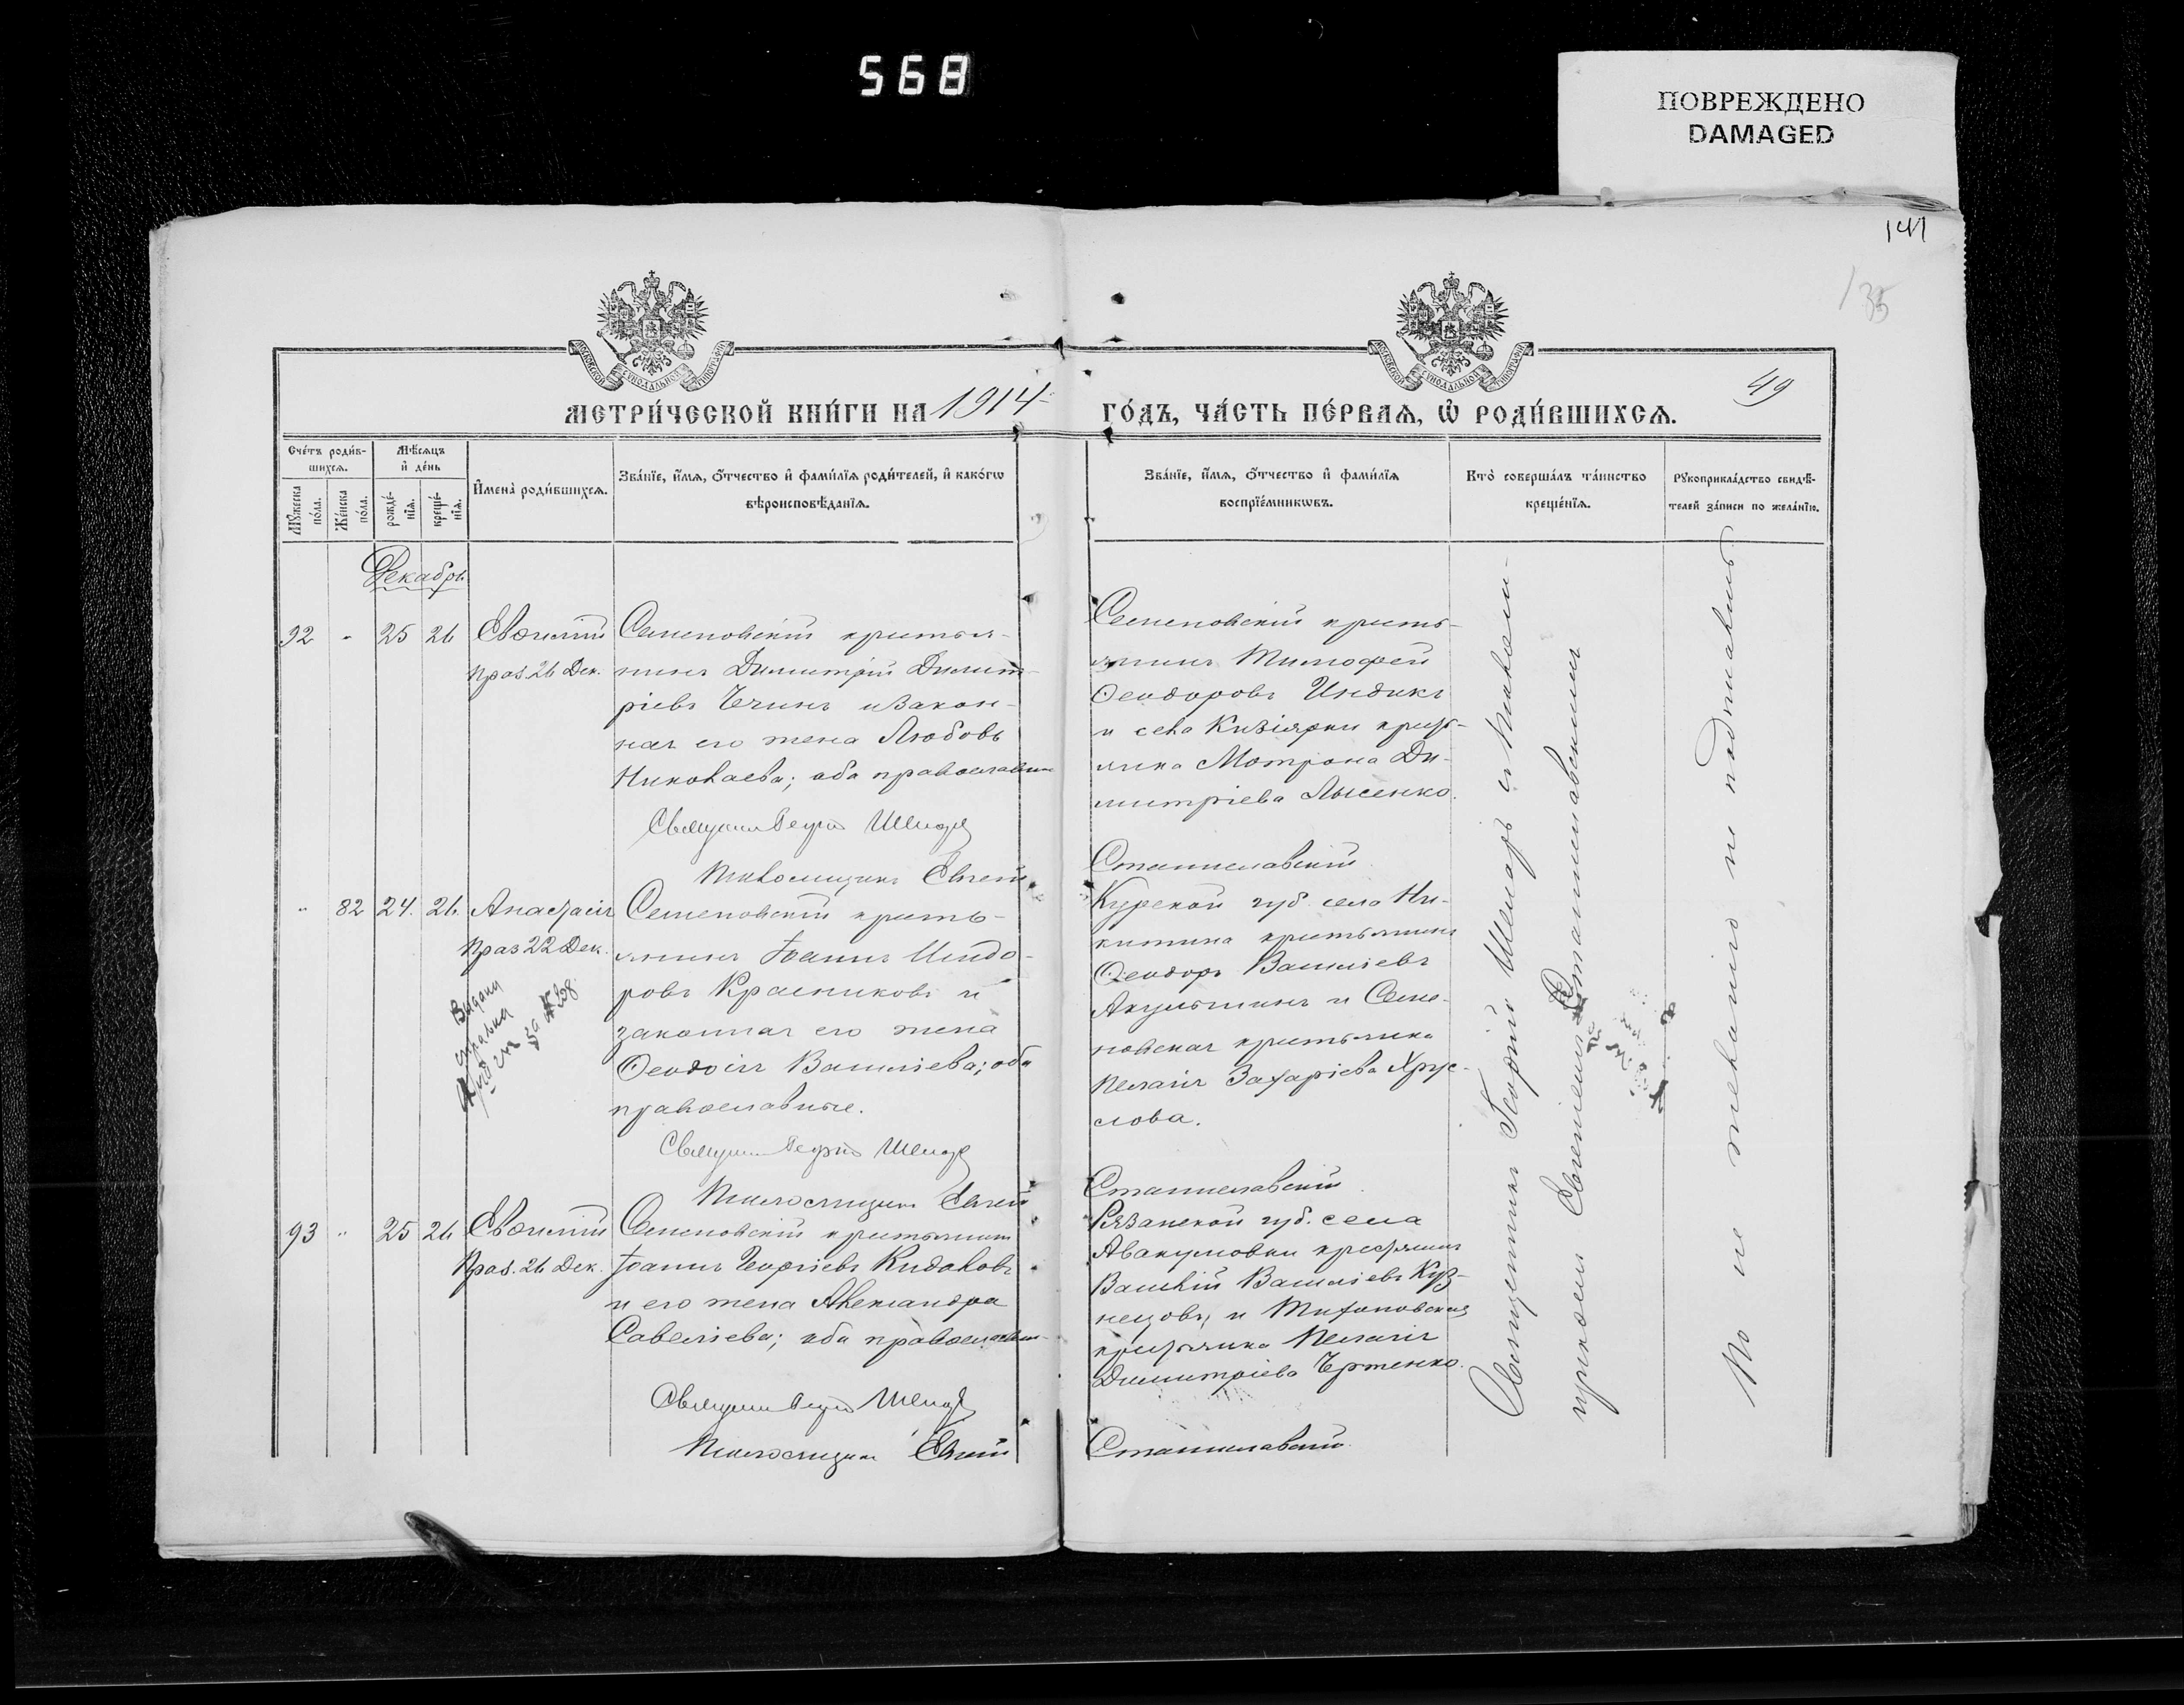 568
ПОВРЕЖДЕНО
DAMAGED
141
135
49
МЕТРИ́ЧЕСКОЙ КНИ́ГИ НА 1914
ГО́ДЪ, ЧА́СТЬ ПЕ́РВАЯ, Ѡ РОДИ́ВШИХСЯ.
Сче́тъ роди́вшихся.
Мꙋжеска по́ла.
Же́нска по́ла.
Мѣ́сяцъ и҆ де́нь
рожде́нїя.
креще́нїя.
И҆мена̀ роди́вшихся.
Зва́нїе, и҆́мя, ѻ҆́тчество и҆ фами́лїя роди́телей, и҆ како́гѡ
вѣроисповѣ́данїя.
Зва́нїе, и҆́мя, ѻ҆́тчество и҆ фами́лїя
воспрїе́мникѡвъ.
Кто̀ соверша́лъ та́инство
креще́нїя.
Рꙋкоприкла́дство свидѣ́-
телей за́писи по жела́нїю.
Декабрь
92 - 25 26 Евѳимій
праз. 26 Дек.
Семеновскій крестья-
нинъ Димитрій Димит-
ріевъ и закон-
ная его жена Любовь
Николаева; оба православные
Священ Георгій Шемаръ
Псаломщикъ Евгеній
Семеновскій кресть-
янинъ Тимофей
Ѳеодоровъ Индикъ
и села Кизіярки крестья-
янка Мотрона Ди-
митріева Лысенко.
Станиславскій
" 82 24. 26. Анастасія
праз 22 Дек.
Выдана
справка
Семеновскій кресть-
янинъ Іоаннъ Исидо-
ровъ Красниковъ и
законная его жена
Ѳеодосія Василіева; оба
православные.
Священ Георгій Шемаръ
Псаломщикъ Евгеній
Курской губ. села Ни-
китина крестьянинъ
Ѳеодоръ Василіевъ
Акульшинъ и Семе-
новская крестьянка
Пелагія Захаріева Хрус-
лова.
Станиславскій
93 " 25 26 Евѳимій
Праз. 26 Дек.
Семеновскій крестьянинъ
Іоаннъ Георгіевъ Кидаловъ
и его жена Александра
Савеліева; оба православные
Священ Георгій Шемаръ
Псаломщикъ Евгеній
Рязанской губ. села
Авакумовки крестьянинъ
Василій Василіевъ Куз-
нецовъ, и Тихоновская
крестьянка Пелагія
Димитріева
Станиславскій
Священникъ Георгій Шемаръ съ псалом-
щикомъ Евгеніемъ Станиславскимъ
По не желанію не подписались